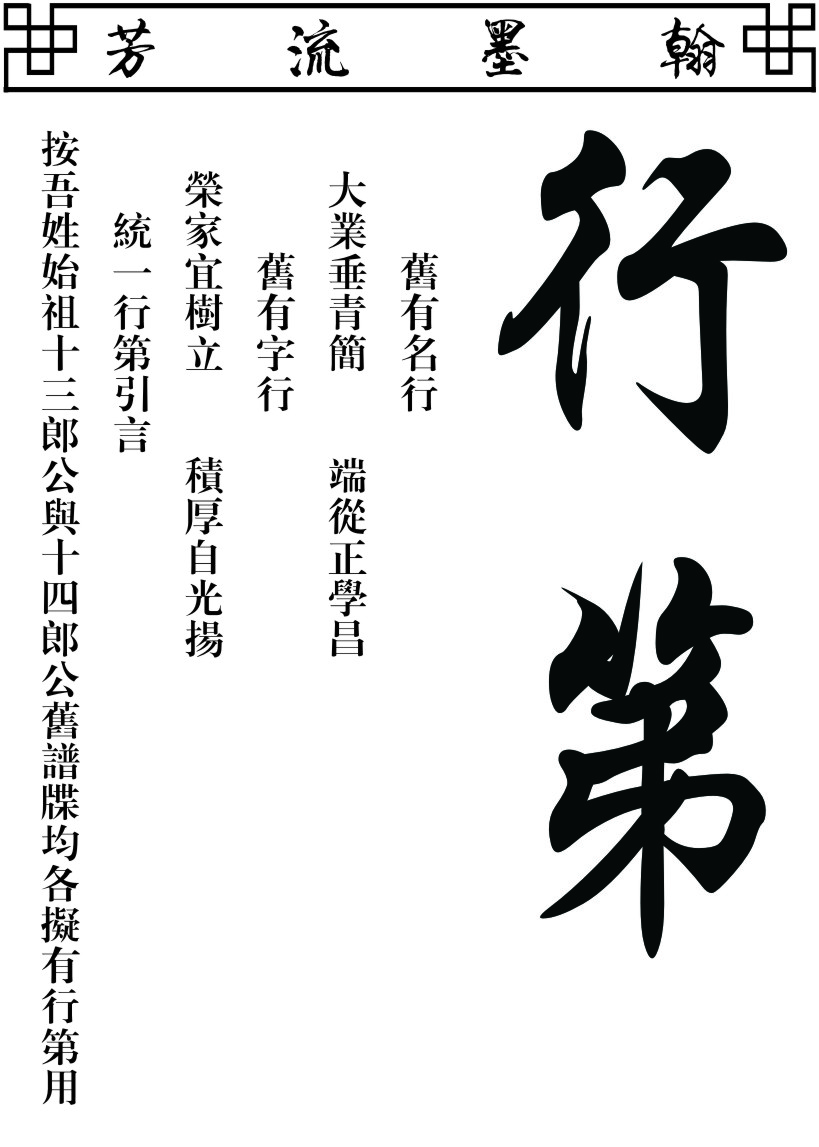 翰墨流芳
行第
舊有名行
大業垂青簡　端從正學昌
舊有字行
榮家宜樹立　積厚自光揚
統一行第引言
按吾姓始祖十三郎公與十四郎公舊譜牒均各擬有行第用